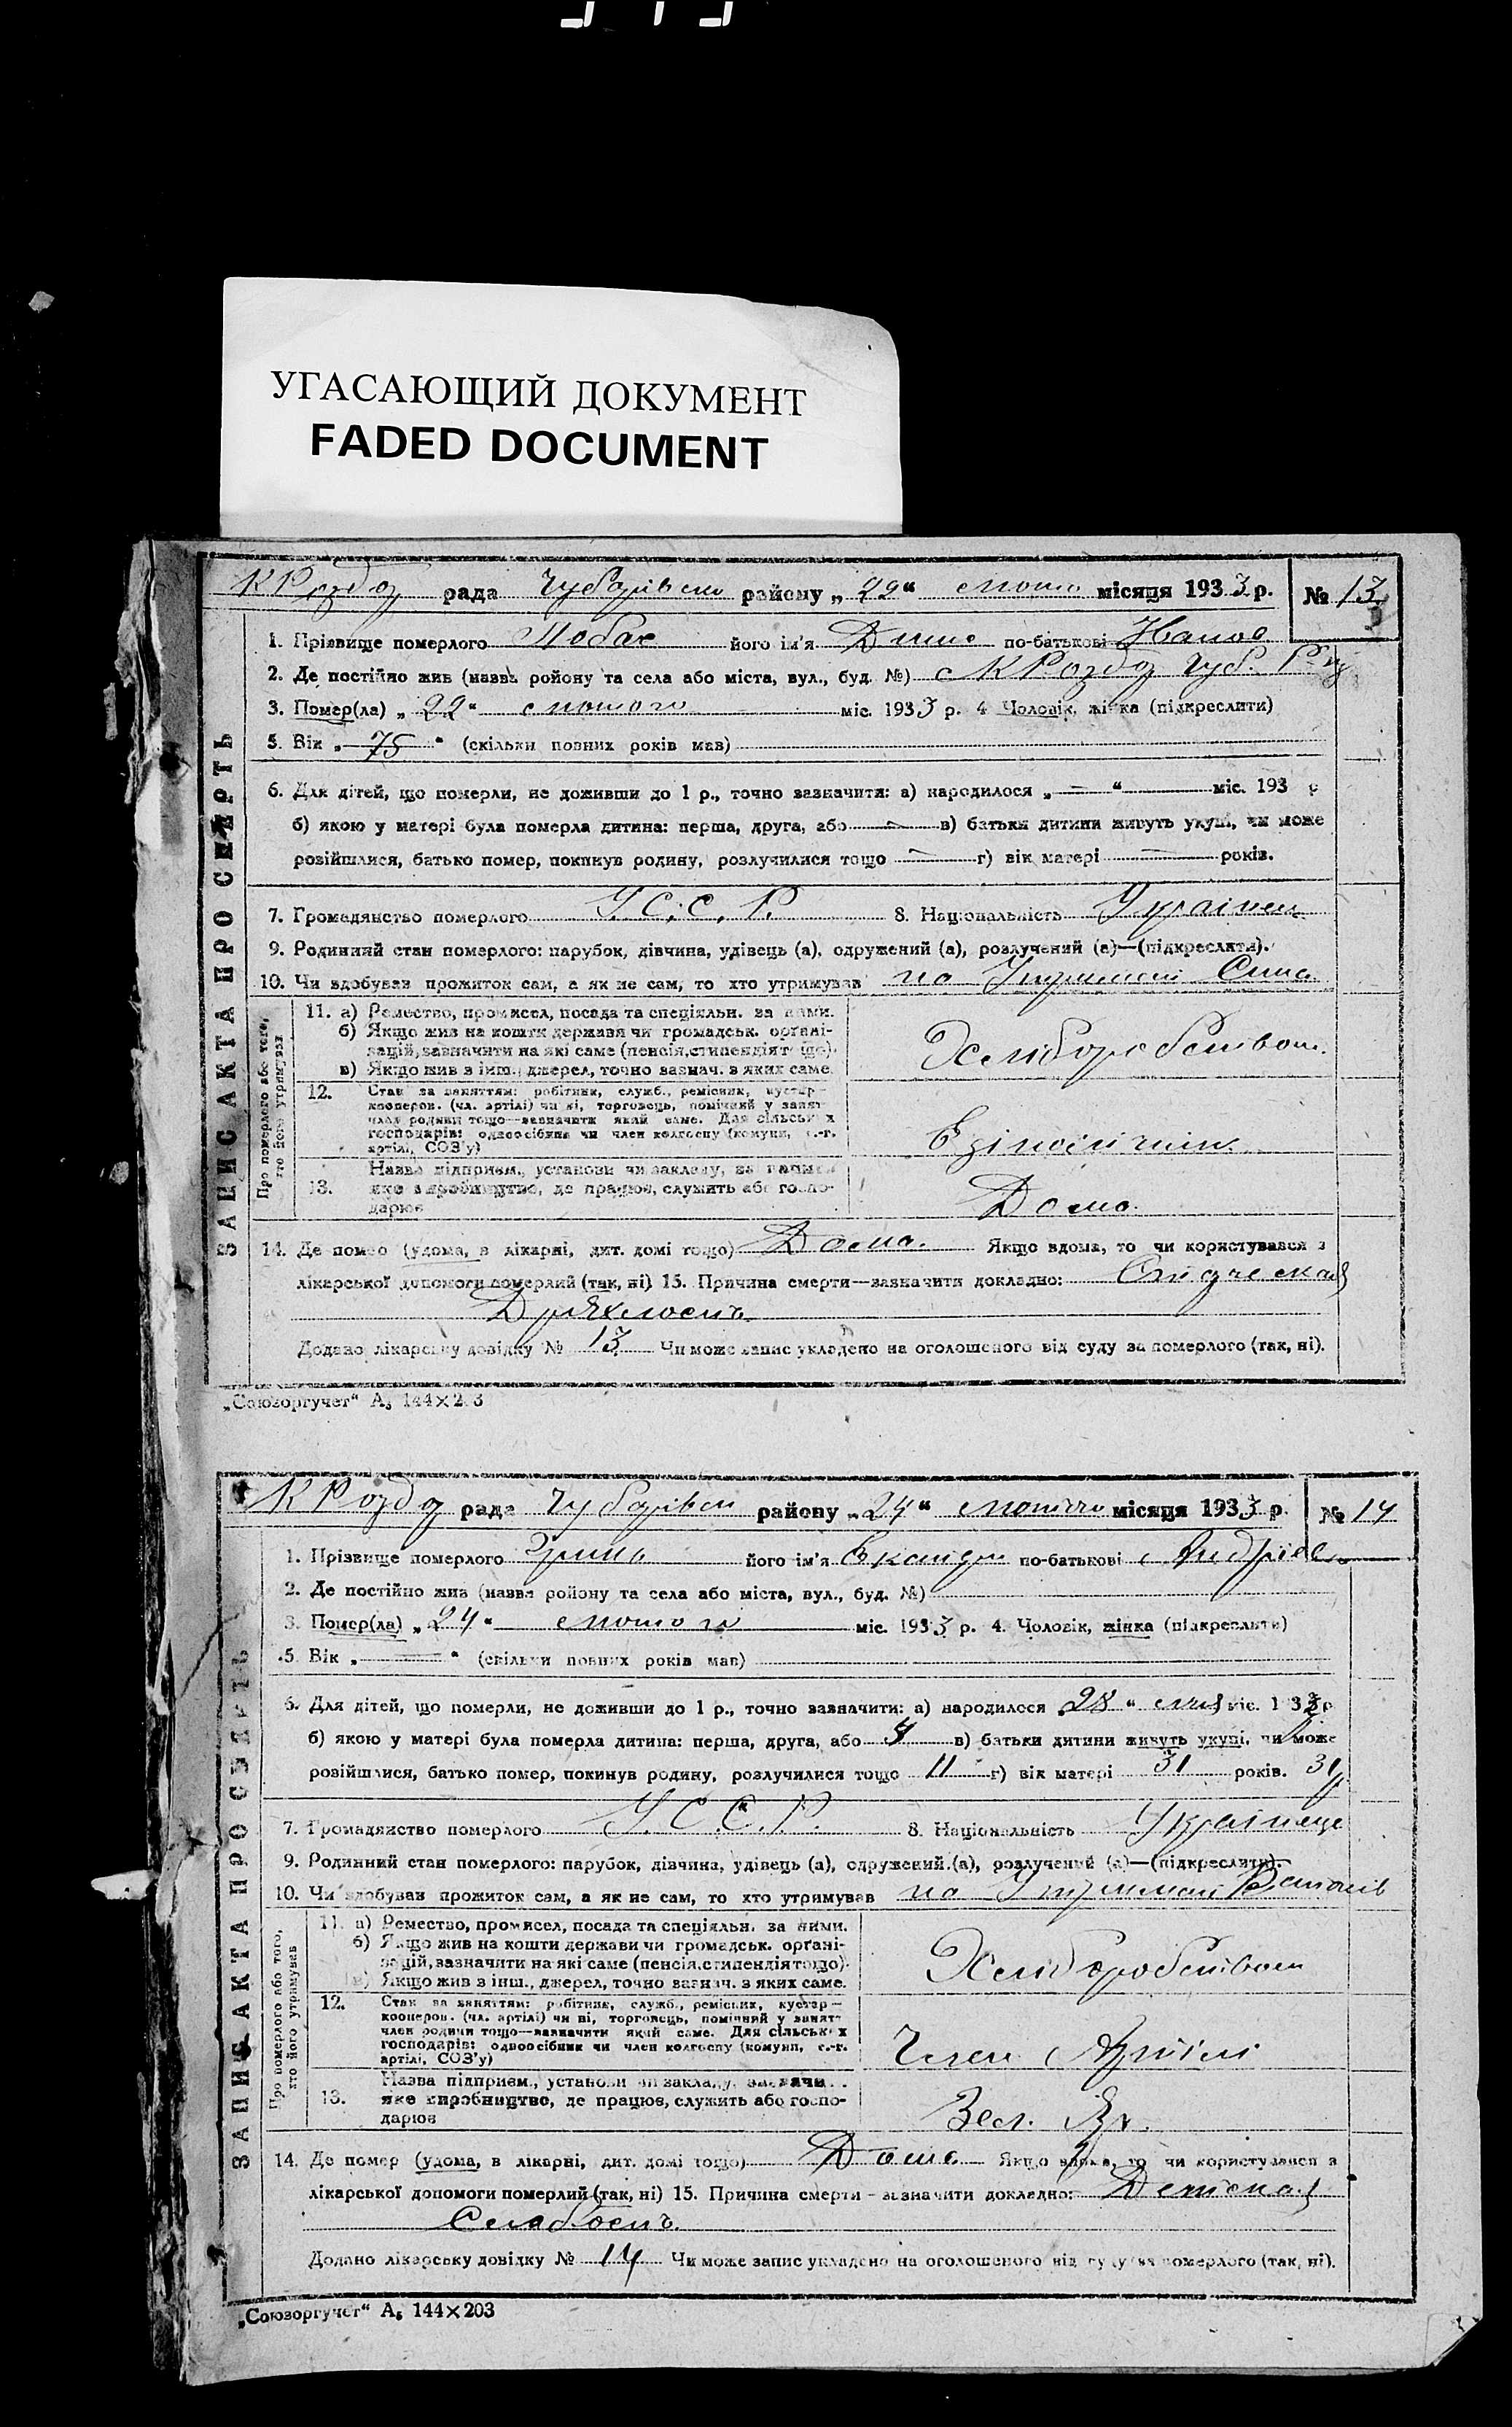 УГАСАЮЩИЙ ДОКУМЕНТ
FADED DOCUMENT
рада район у „22“ місяця 1933 р. № 13
ЗАПИС АКТА ПРО СМЕРТЬ
1. Прізвище померлого його ім'я по-батькові
2. Де постійно жив (назвъ ройону та села або міста, вул., буд. №)
3. Помер(ла) „22“ лютого міс. 1933 р. 4 Чоловік, жінка (підкреслити)
5. Вік „75“ (скільки повних років мав)
6. Для дітей, що померли, не доживши до 1 р., точно зазначити: а) народилося „—“ — міс. 193 р
б) якою у матері була померла дитина: перша, друга, або — в) батьки дитини живуть укупі, чи може
розійшлися, батько помер, покинув родину, розлучилися тощо — г) вік матері — років.
7. Громадянство померлого У.С.С.Р. 8. Національність Українец
9. Родинний стан померлого: парубок, дівчина, удівець (а), одружений (а), розлучений (а)—(підкреслити).
10. Чи здобував прожиток сам, а як не сам, то хто утримував на Утриманні Сина
Про померлого або того, хто його утримував
11. а) Ремество, промисел, посада та спеціяльн. за ними.
б) Якщо жив на кошти держави чи громадськ. органі-
зацій, зазначити на які саме (пенсія, стипендія тощо).
в) Якщо жив з інш., джерел, точно зазнач. з яких саме.
Хліборобством
12. Стан за заняттям: робітник, служб., ремісник, кустар—
кооперов. (чл. артілі) чи ні, торговець, помічний у занят—
член родини тощо—зазначити який саме. Для сільських
господарів: одноосібник чи член колгоспу (комуни, с.-г.
артілі, СОЗ'у)
13. Назва підприєм., установи чи закладу, зазначи
яке виробництво, де працює, служить або госпо-
дарює
Дома
14. Де помер (удома, в лікарні, дит. домі тощо) Дома. Якщо вдома, то чи користувався з
лікарської допомоги померлий (так, ні) 15. Причина смерти—зазначити докладно:
Дряхлость
Додано лікарську довідку № 13 Чи може запис укладено на оголошеного від суду за померлого (так, ні).
„Союзоргучет“ А₅ 144×203
рада району „24“ лютого місяця 1933 р. № 14
ЗАПИС АКТА ПРО СМЕРТЬ
1. Прізвище померлого його ім'я по-батькові
2. Де постійно жив (назва ройону та села або міста, вул., буд. №)
3. Помер(ла) „24“ лютого міс. 1933 р. 4. Чоловік, жінка (підкреслити)
5. Вік „—“ (скільки повних років мав)
6. Для дітей, що померли, не доживши до 1 р., точно зазначити: а) народилося „28“ міс. 193 р
б) якою у матері була померла дитина: перша, друга, або в) батьки дитини живуть укупі, чи може
розійшлися, батько помер, покинув родину, розлучилися тощо 11 г) вік матері 31 років. 31
7. Громадянство померлого У.С.С.Р. 8. Національність
9. Родинний стан померлого: парубок, дівчина, удівець (а), одружений (а), розлучений (а)—(підкреслити).
10. Чи здобував прожиток сам, а як не сам, то хто утримував на Утриманні
Про померлого або того, хто його утримував
11. а) Ремество, промисел, посада та спеціяльн. за ними.
б) Якщо жив на кошти держави чи громадськ. органі-
зацій, зазначити на які саме (пенсія, стипендія тощо).
в) Якщо жив з інш., джерел, точно зазнач. з яких саме.
Хліборобством
12. Стан за заняттям: робітник, служб., ремісник, кустар—
кооперов. (чл. артілі) чи ні, торговець, помічний у занят—
член родини тощо—зазначити який саме. Для сільських
господарів: одноосібник чи член колгоспу (комуни, с.-г.
артілі, СОЗ'у)
Член Артілі
13. Назва підприєм., установи чи закладу, зазначи
яке виробництво, де працює, служить або госпо-
дарює
14. Де помер (удома, в лікарні, дит. домі тощо) Дома Якщо вдома, то чи користувався з
лікарської допомоги померлий (так, ні) 15. Причина смерти - зазначити докладно: Детская
Слабость
Додано лікарську довідку № 14 Чи може запис укладено на оголошеного від суду за померлого (так, ні).
„Союзоргучет“ А₅ 144×203